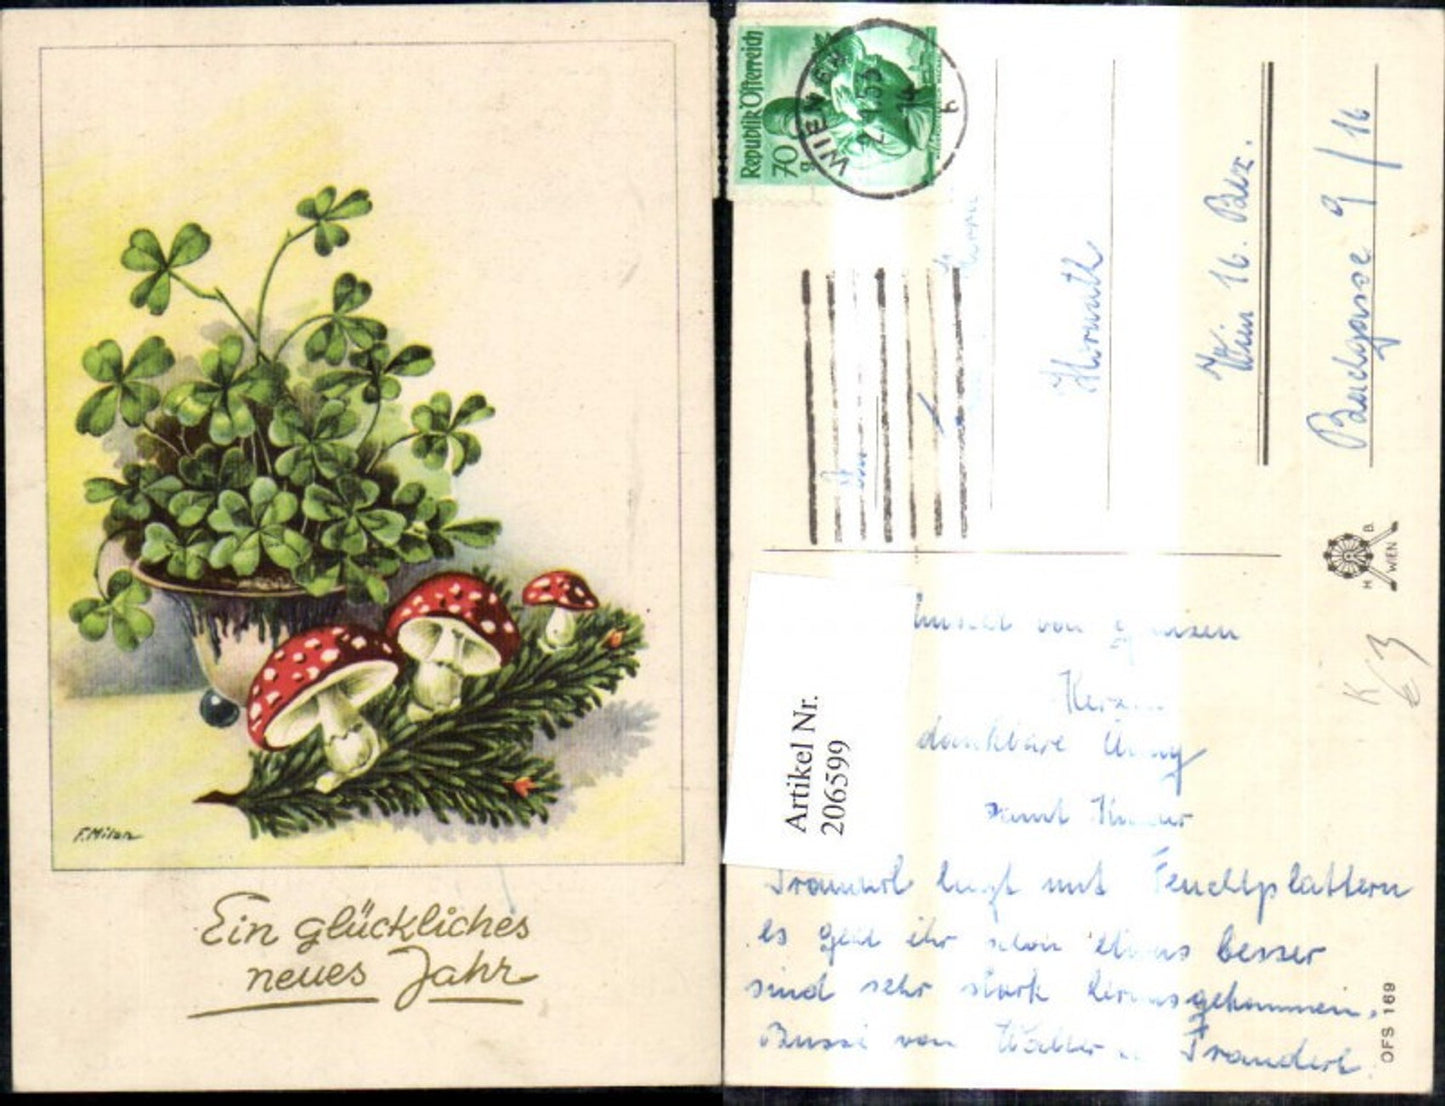 F. Milan
Ein glückliches
neues Jahr
Republik Österreich
70 g
WIEN
2.1.53
14
b
Wien 16. Bez.
9/16
H B.
WIEN
K 63
Artikel Nr.
206599
von ganzen
dankbare
samt Kinder
liegt mit Feuchtplattern
es geht ihr schon etwas besser
sind sehr stark herausgekommen.
Bussi von Walter u
OFS 169